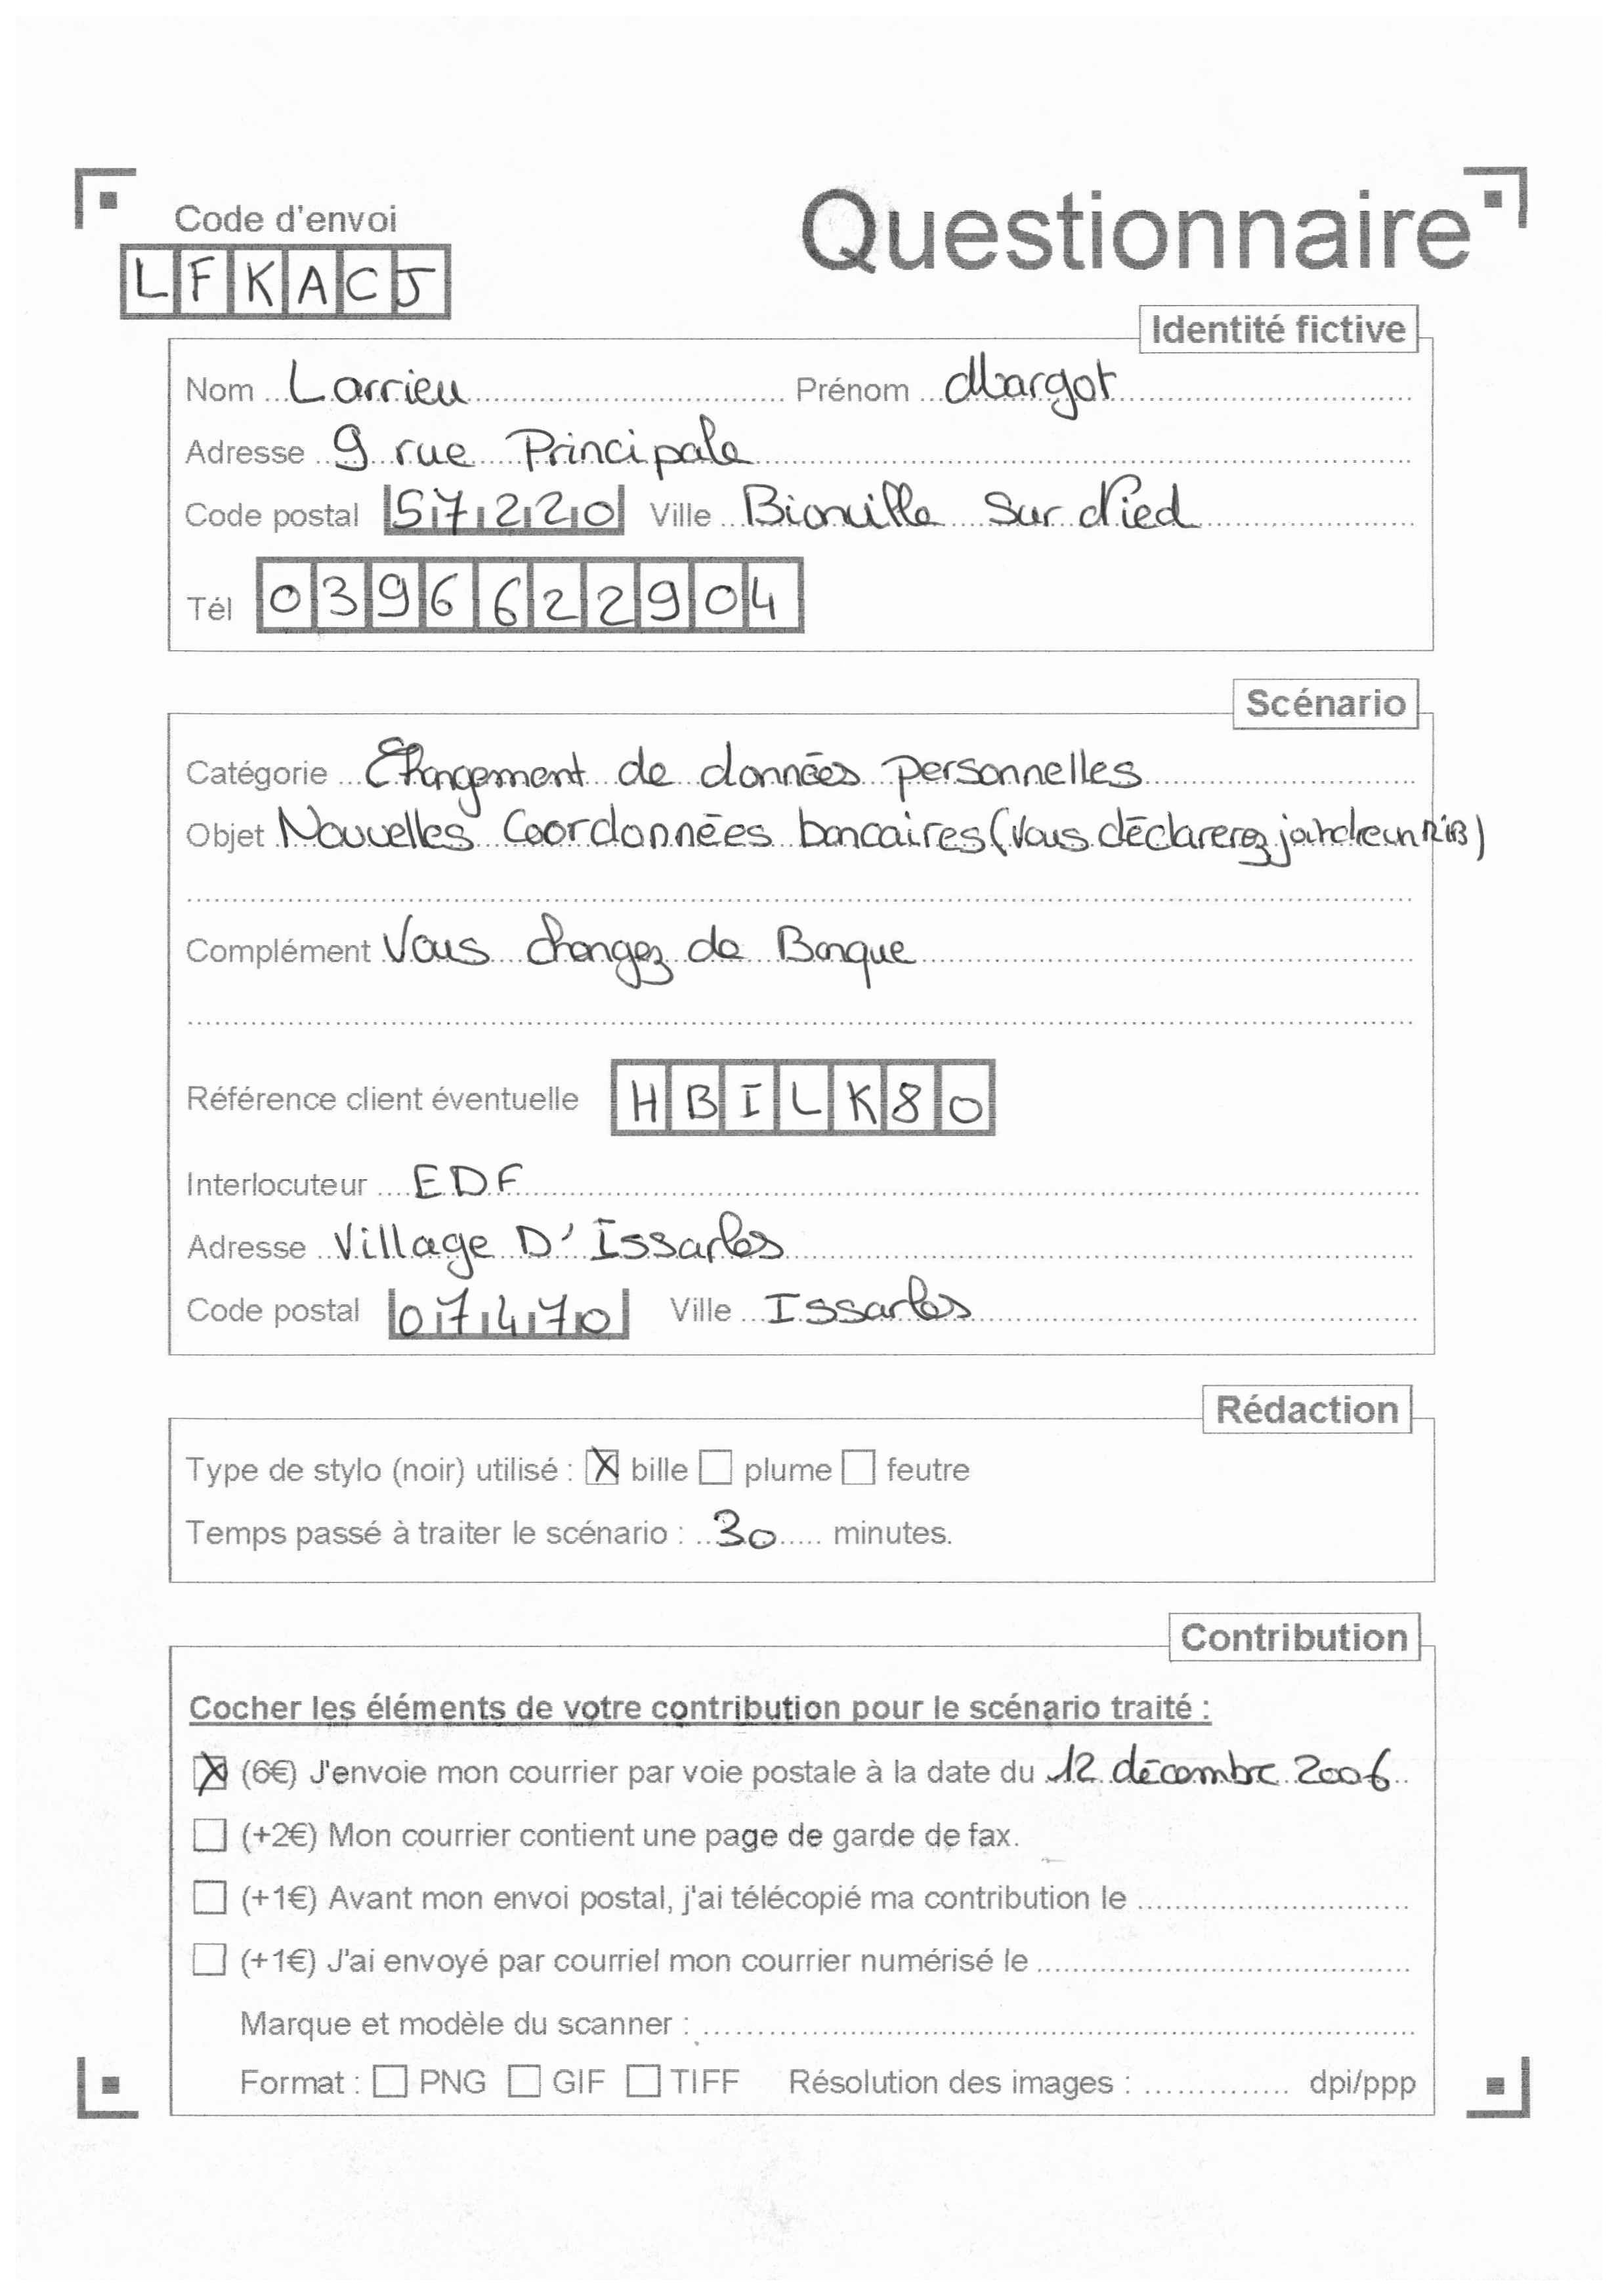 Code d'envoi
Questionnaire
LFKACJ
Identité fictive
Nom Larrieu Prénom Margot
Adresse 9 rue Principale
Code postal 57220 Ville Bionville Sur Nied
Tél 0396622904
Scénario
Catégorie Changement de données personnelles
Objet Nouvelles Coordonnées bancaires (Vous déclarerez joindre un RIB)
Complément Vous changez de Banque
Référence client éventuelle HBILK80
Interlocuteur EDF
Adresse Village D'Issarles
Code postal 07470 Ville Issarles
Rédaction
Type de stylo (noir) utilisé : ☒ bille ☐ plume ☐ feutre
Temps passé à traiter le scénario : 30 minutes.
Contribution
Cocher les éléments de votre contribution pour le scénario traité :
☒ (6€) J'envoie mon courrier par voie postale à la date du 12 décembre 2006
☐ (+2€) Mon courrier contient une page de garde de fax.
☐ (+1€) Avant mon envoi postal, j'ai télécopié ma contribution le
☐ (+1€) J'ai envoyé par courriel mon courrier numérisé le
Marque et modèle du scanner :
Format : ☐ PNG ☐ GIF ☐ TIFF Résolution des images : dpi/ppp